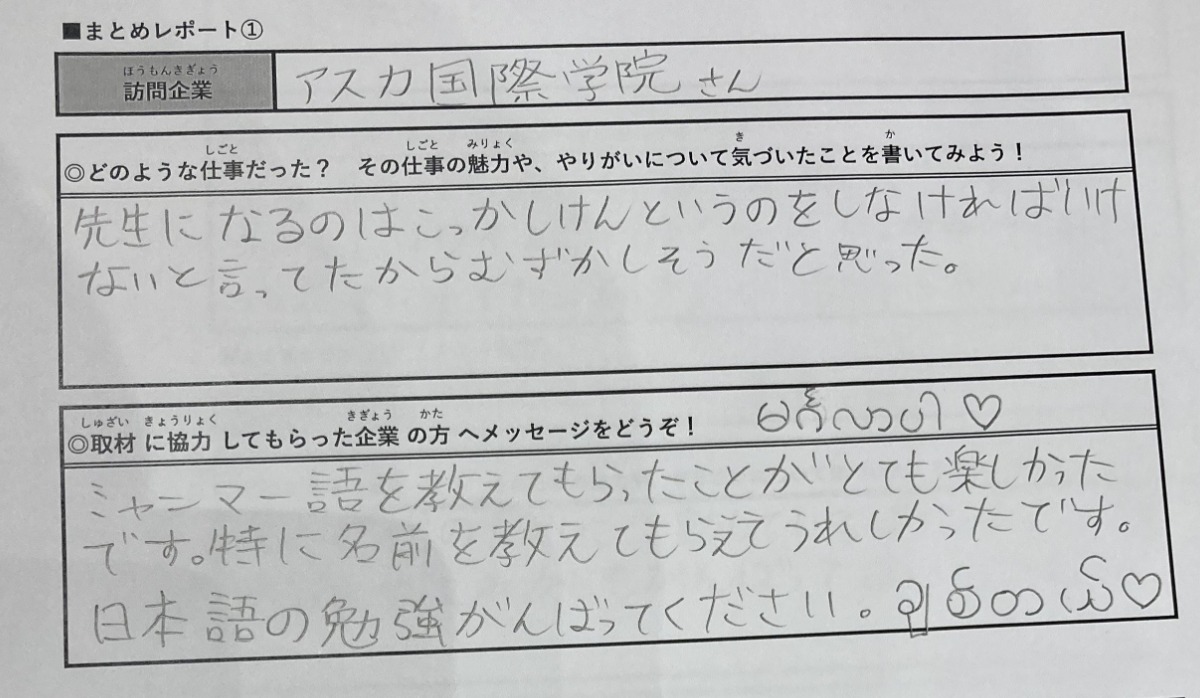 ■まとめレポート①
ほうもんきぎょう
訪問企業
アスカ国際学院さん
しごと しごと みりょく き か
◎どのような仕事だった？ その仕事の魅力や、やりがいについて気づいたことを書いてみよう！
先生になるのはこっかしけんというのをしなければいけ
ないと言ってたからむずかしそうだと思った。
しゅざい きょうりょく きぎょう かた
◎取材に協力してもらった企業の方へメッセージをどうぞ！
မင်္ဂလာပါ♡
ミャンマー語を教えてもらったことがとても楽しかった
です。特に名前を教えてもらえてうれしかったです。
日本語の勉強がんばってください。ချစ်တယ်♡